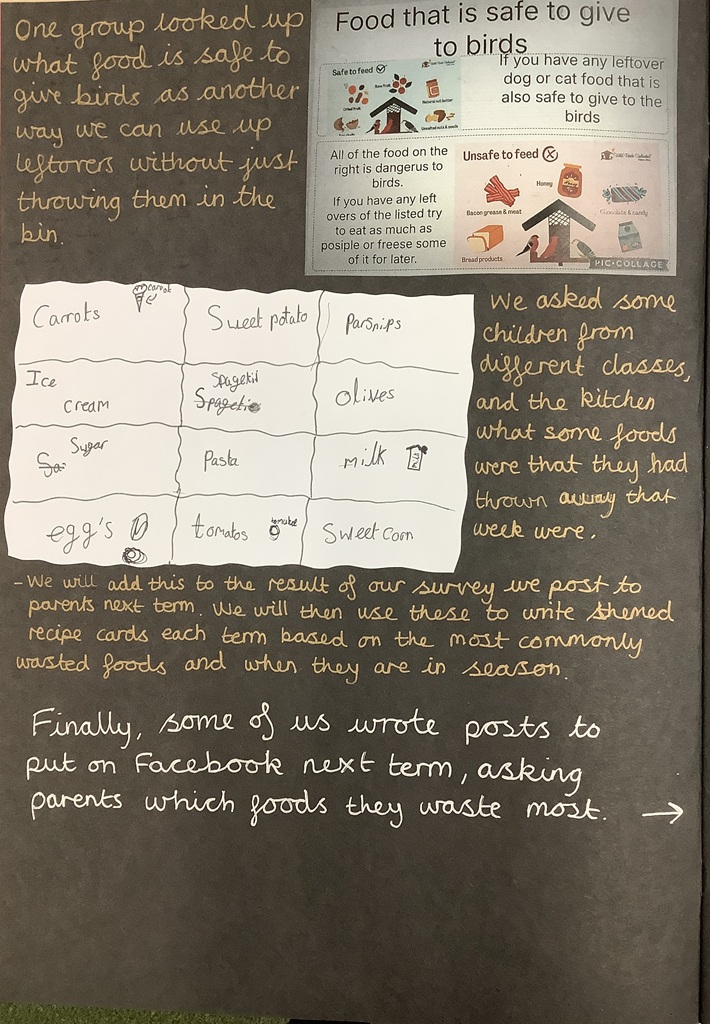 One group looked up
what food is safe to
give birds as another
way we can use up
leftovers without just
throwing them in the
bin.
Food that is safe to give
to birds
Safe to feed
If you have any leftover
dog or cat food that is
also safe to give to the
birds
All of the food on the
right is dangerus to
birds.
If you have any left
overs of the listed try
to eat as much as
posiple or freese some
of it for later.
Unsafe to feed
Honey
Bacon grease & meat
Chocolate & candy
Bread products
PIC•COLLAGE
Carrots
carrot
Sweet potato
Parsnips
Ice
cream
Spagetii
Olives
Sugar
Pasta
milk
egg's
tomatos
Sweetcorn
We asked some
children from
different classes,
and the kitchen
what some foods
were that they had
thrown away that
week were.
- We will add this to the result of our survey we post to
parents next term. We will then use these to write themed
recipe cards each term based on the most commonly
wasted foods and when they are in season.
Finally, some of us wrote posts to
put on Facebook next term, asking
parents which foods they waste most. →